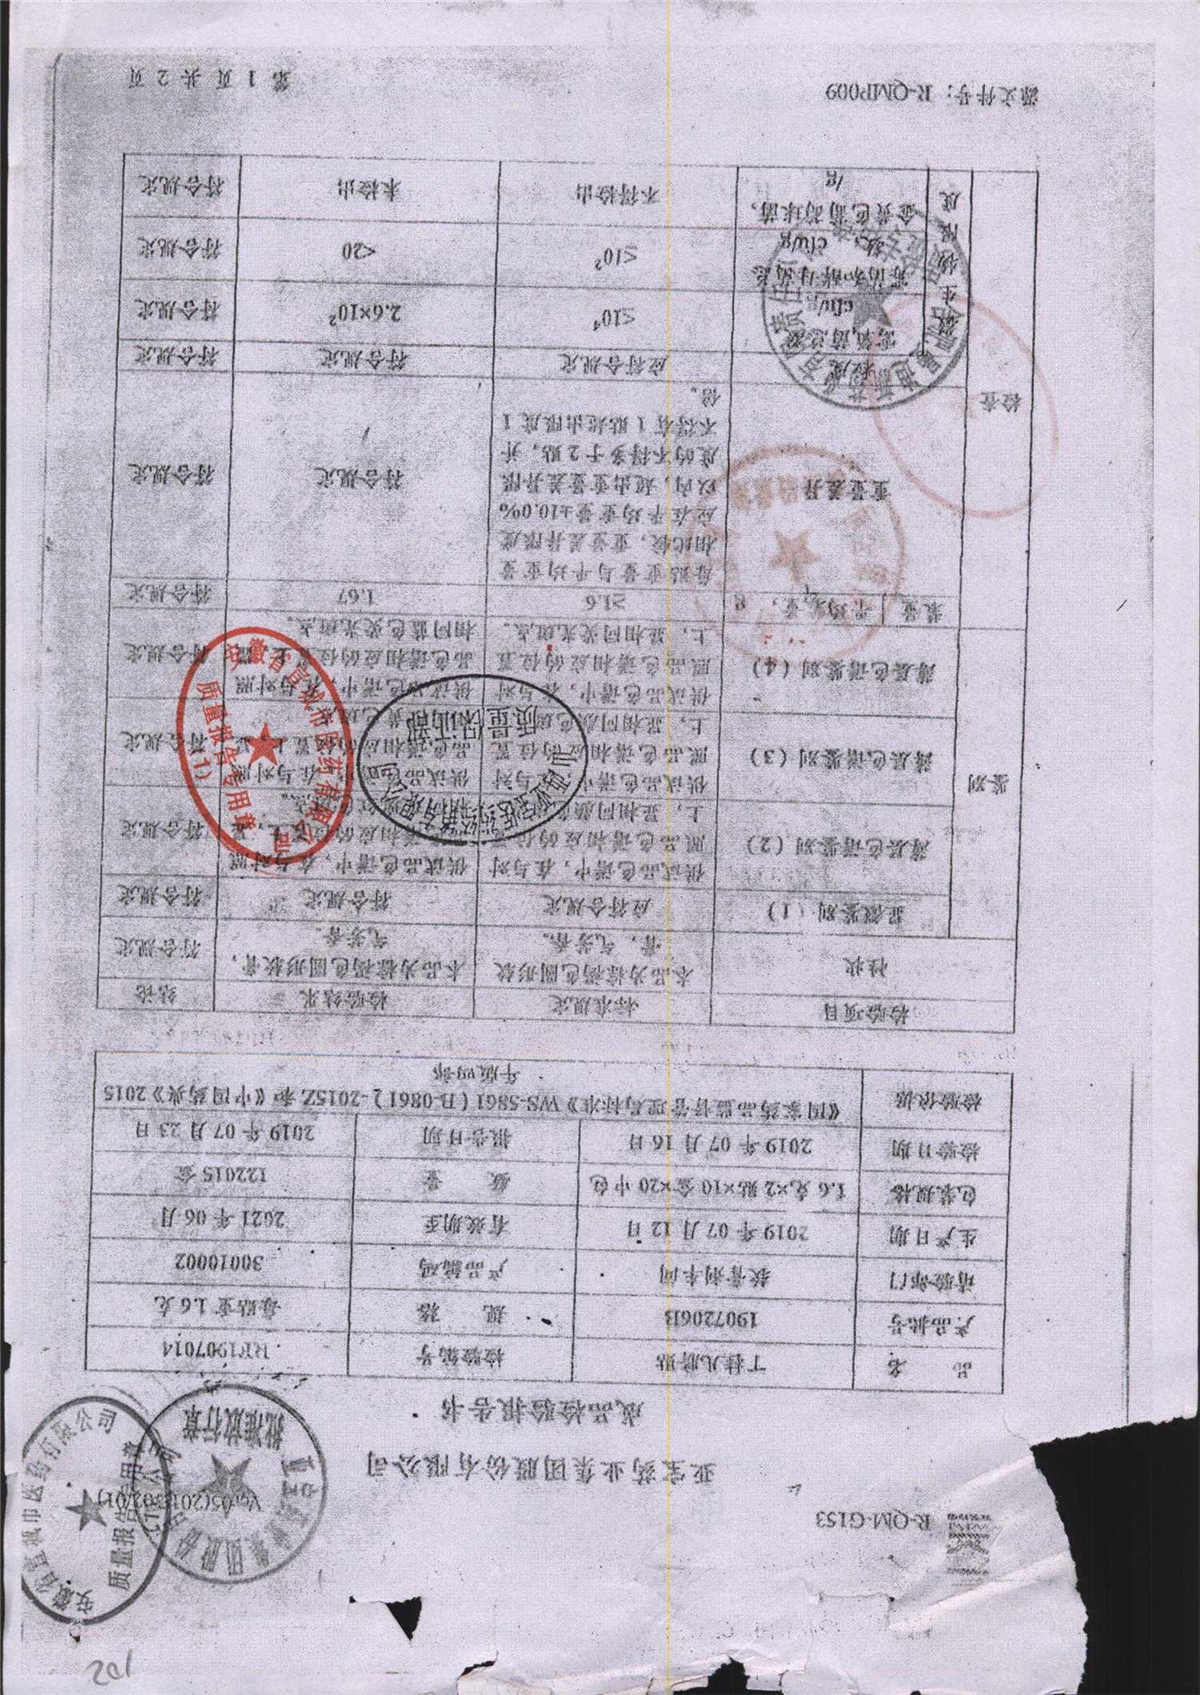 R-QM-G153
Ver05(2018/02/01)
亚宝药业集团股份有限公司
成品检验报告书
品 名 丁桂儿脐贴 检验编号 RF1907014
产品批号 19072061B 规 格 每贴重1.6克
请验部门 软膏剂车间 产品编码 30010002
生产日期 2019年07月12日 有效期至 2021年06月
包装规格 1.6克×2贴×10盒×20中包 数 量 122015盒
检验日期 2019年07月16日 报告日期 2019年07月23日
检验依据 《国家药品监督管理局标准》WS-5861(B-0861)-2015Z和《中国药典》2015
年版四部
检验项目 标准规定 检验结果 结论
性状 本品为棕褐色圆形软膏，气芳香。 本品为棕褐色圆形软膏，气芳香。 符合规定
鉴别
显微鉴别（1） 应符合规定 符合规定 符合规定
薄层色谱鉴别（2） 供试品色谱中，在与对照品色谱相应的位置上，显相同颜色 供试品色谱中，在与对照 符合规定
薄层色谱鉴别（3） 供试品色谱中，在与对照品色谱相应的位置上，显相同颜色 供试品色谱中，在与对照品色谱相应的位置上 符合规定
薄层色谱鉴别（4） 供试品色谱中，在与对照品色谱相应的位置上，显相同荧光斑点。 供试品色谱中，在与对照品色谱相应的位置上，显相同蓝色荧光斑点。 符合规定
检查
装量 平均装量，g ≥1.6 1.67 符合规定
重量差异 每贴重量与平均重量相比较，重量差异限度应在平均重量±10.0%以内，超出重量差异限度的不得多于2贴，并不得有1贴超出限度1倍。 符合规定 符合规定
粒度 应符合规定 符合规定 符合规定
微生物限度
需氧菌总数，cfu/g ≤10⁴ 2.6×10² 符合规定
霉菌和酵母菌总数，cfu/g ≤10² <20 符合规定
金黄色葡萄球菌，/g 不得检出 未检出 符合规定
源文件号：R-QMP009
第1页共2页
安徽省宣城市医药有限公司
质量报告专用章
（1）
质量保证部
批准放行章
安徽省宣城市医药有限公司
质量报告专用章
201